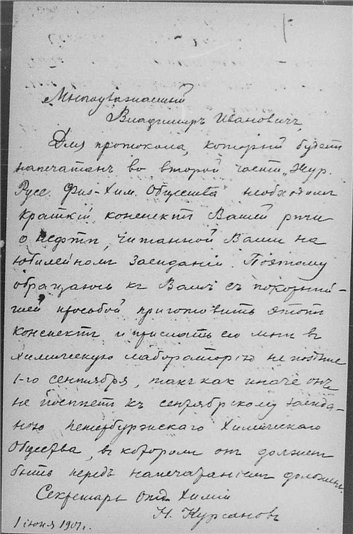 Многоуважаемый
Владимиръ Ивановичъ,
Для протокола, который будетъ
напечатанъ во второй части „Жур.
Русс. Физ-Хим. Общества" необходимъ
краткій конспектъ Вашей рѣчи
о нефти, читанной Вами на
юбилейномъ засѣданіи. Поэтому
обращаюсь къ Вамъ съ покорнѣй-
шей просьбой приготовить этотъ
конспектъ и прислать его мнѣ въ
химическую лабораторію не позже
1-го сентября, такъ какъ иначе онъ
не поспѣетъ къ сентябрскому засѣда-
нію петербургскаго Химическаго
Общества, въ которомъ онъ долженъ
быть передъ напечатаніемъ доложенъ.
Секретарь Отд. Химіи
Н. Курсановъ
1 іюня 1901 г.